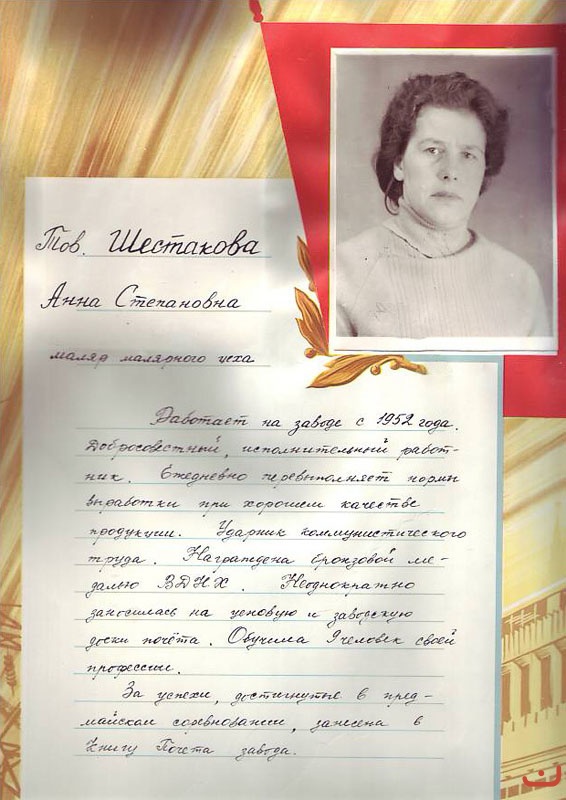 Тов. Шестакова
Анна Степановна
маляр малярного цеха
Работает на заводе с 1952 года.
Добросовестный, исполнительный работ-
ник. Ежедневно перевыполняет нормы
выработки при хорошем качестве
продукции. Ударник коммунистического
труда. Награждена бронзовой ме-
далью ВДНХ. Неоднократно
заносилась на цеховую и заводскую
доски почёта. Обучила 9 человек своей
профессии.
За успехи, достигнутые в пред-
майском соревновании, занесена в
Книгу Почета завода.